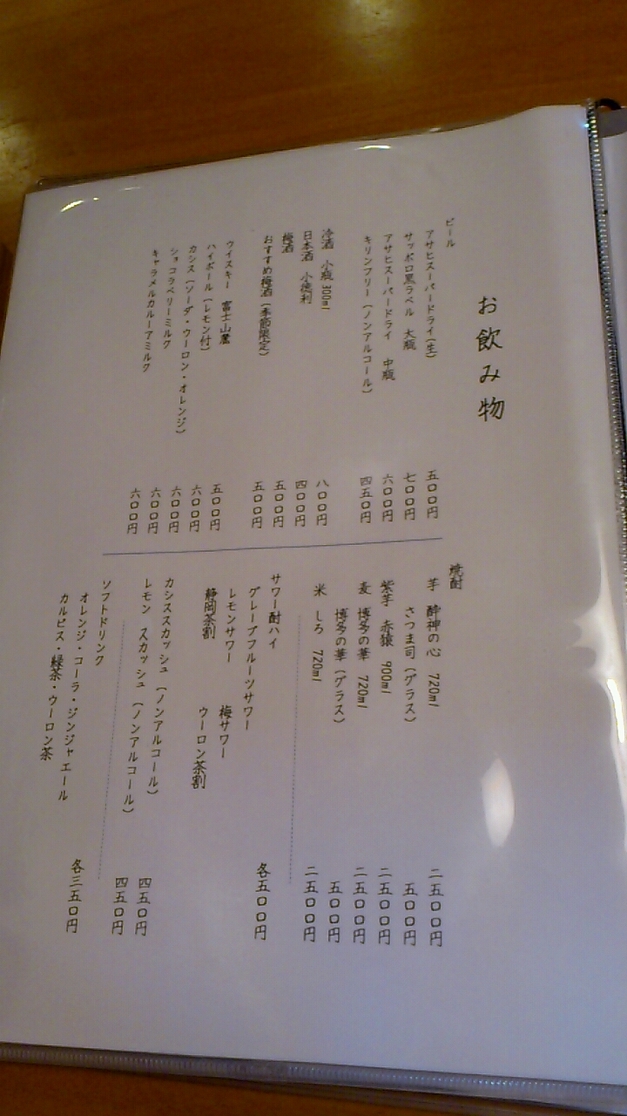 お飲み物
ビール
アサヒスーパードライ(生) 五〇〇円
サッポロ黒ラベル 大瓶 七〇〇円
アサヒスーパードライ 中瓶 六〇〇円
キリンフリー(ノンアルコール) 四五〇円
冷酒 小瓶 300ml 八〇〇円
日本酒 小徳利 四〇〇円
梅酒 五〇〇円
おすすめ梅酒(季節限定) 五〇〇円
ウイスキー 富士山麓 五〇〇円
ハイボール(レモン付) 六〇〇円
カシス(ソーダ・ウーロン・オレンジ) 六〇〇円
ショコラベリーミルク 六〇〇円
キャラメルカルーアミルク 六〇〇円
焼酎
芋 酔神の心 720ml 二五〇〇円
さつま司(グラス) 五〇〇円
紫芋 赤猿 900ml 二五〇〇円
麦 博多の華 720ml 二五〇〇円
博多の華(グラス) 五〇〇円
米 しろ 720ml 二五〇〇円
サワー酎ハイ 各五〇〇円
グレープフルーツサワー
レモンサワー 梅サワー
静岡茶割 ウーロン茶割
カシススカッシュ(ノンアルコール) 四五〇円
レモン スカッシュ(ノンアルコール) 四五〇円
ソフトドリンク
オレンジ・コーラ・ジンジャエール 各三五〇円
カルピス・緑茶・ウーロン茶